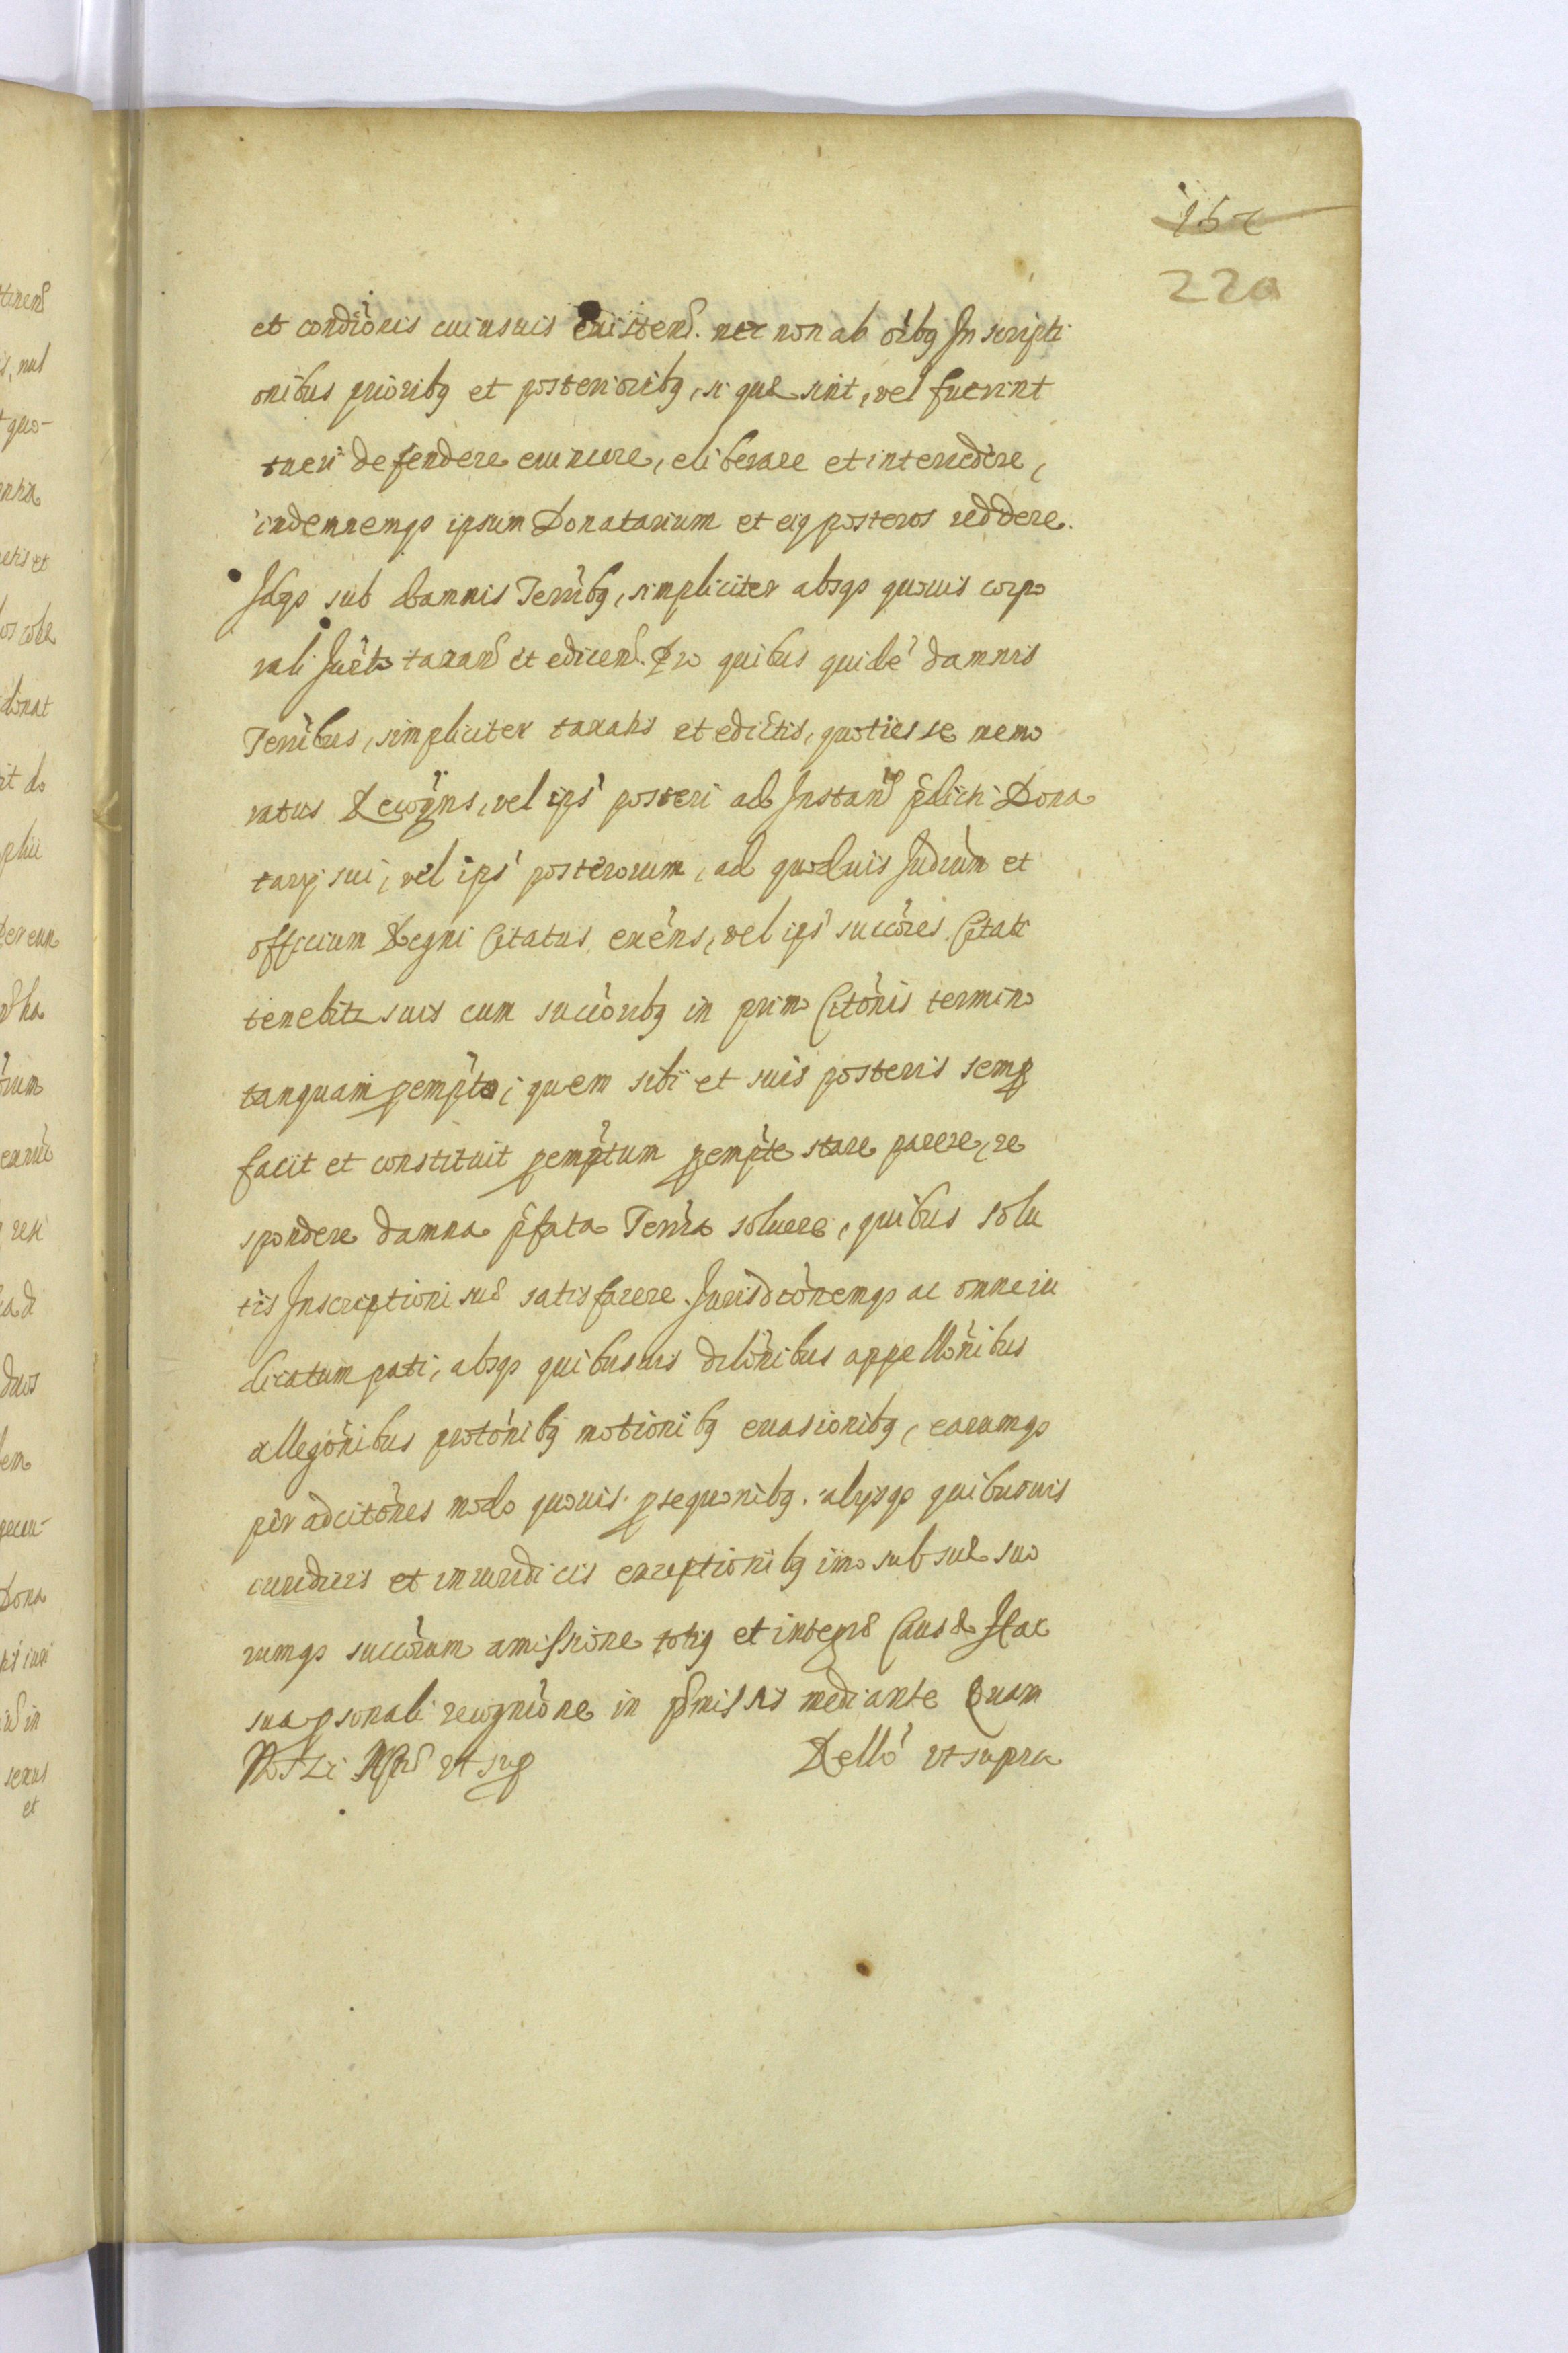 220
et condiōis cuiusuis existen. nec non ab oībq Inscripti
onibus priōribq et posterioribq, si quæ sint, vel fuerint
tueri defendere euincere, eliberare et intercedere,
indemnemq ipsum Donatarium et eiq posteros reddere.
Idq sub damnis Terribq, simpliciter absq quouis corpo
rali Iurāto taxan et edicen. Pro quibus quidē damnis
Terribus, simpliciter taxatis et edictis, quoties se memo
ratus Recogns, vel ips posteri ad Instan p̄dicti Dona
tarij sui, vel ips posterorum, ad quoduis Iudicium et
officium Regni Citatus exēns, vel ips succōres Citati
tenebitr suis cum succōribq in primo Citōnis termino
tanquam pempto, quem sibi et suis posteris semp
facit et constituit pemptum pempte stare parere, re
spondere damna p̄fata Terra soluere, quibus solu
tis Inscriptioni suæ satisfacere. Iurisdcōnemq ac omne iu
dicatum pati, absq quibusuis dilōnibus appellōnibus
allegōnibus protōnibq motionibq euasionibq, earumq
per adcitōnes modo quouis psequōnibq. alijsq quibusuis
iuridicis et iniuridicis exceptionibq imo sub suæ suo
rumq succōrum amissione totiq et integræ Causæ Hac
sua psonali recognicōne in pmissis mediante Quam
ut sup Rellō vt supra